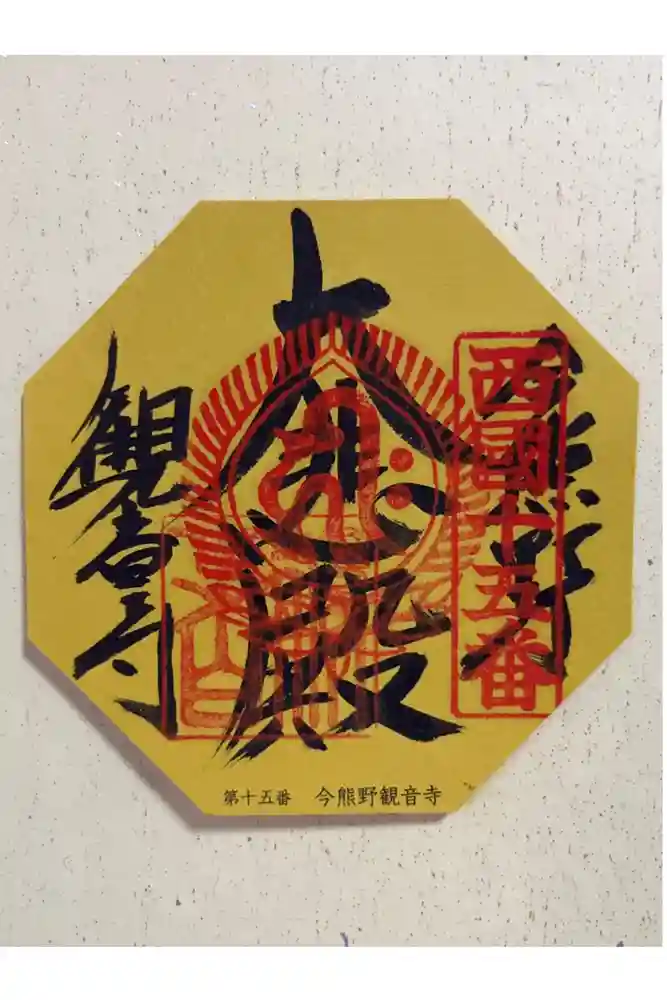 西國十五番
今熊野
大悲殿
観音寺
第十五番 今熊野観音寺